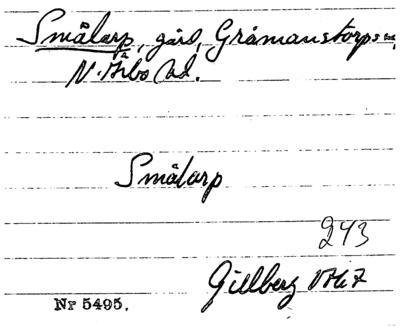 Smålarp, gård, Gråmanstorps sn,
N. Åsbo hd.
Smålarp
243
Gillberg
Nr 5495.